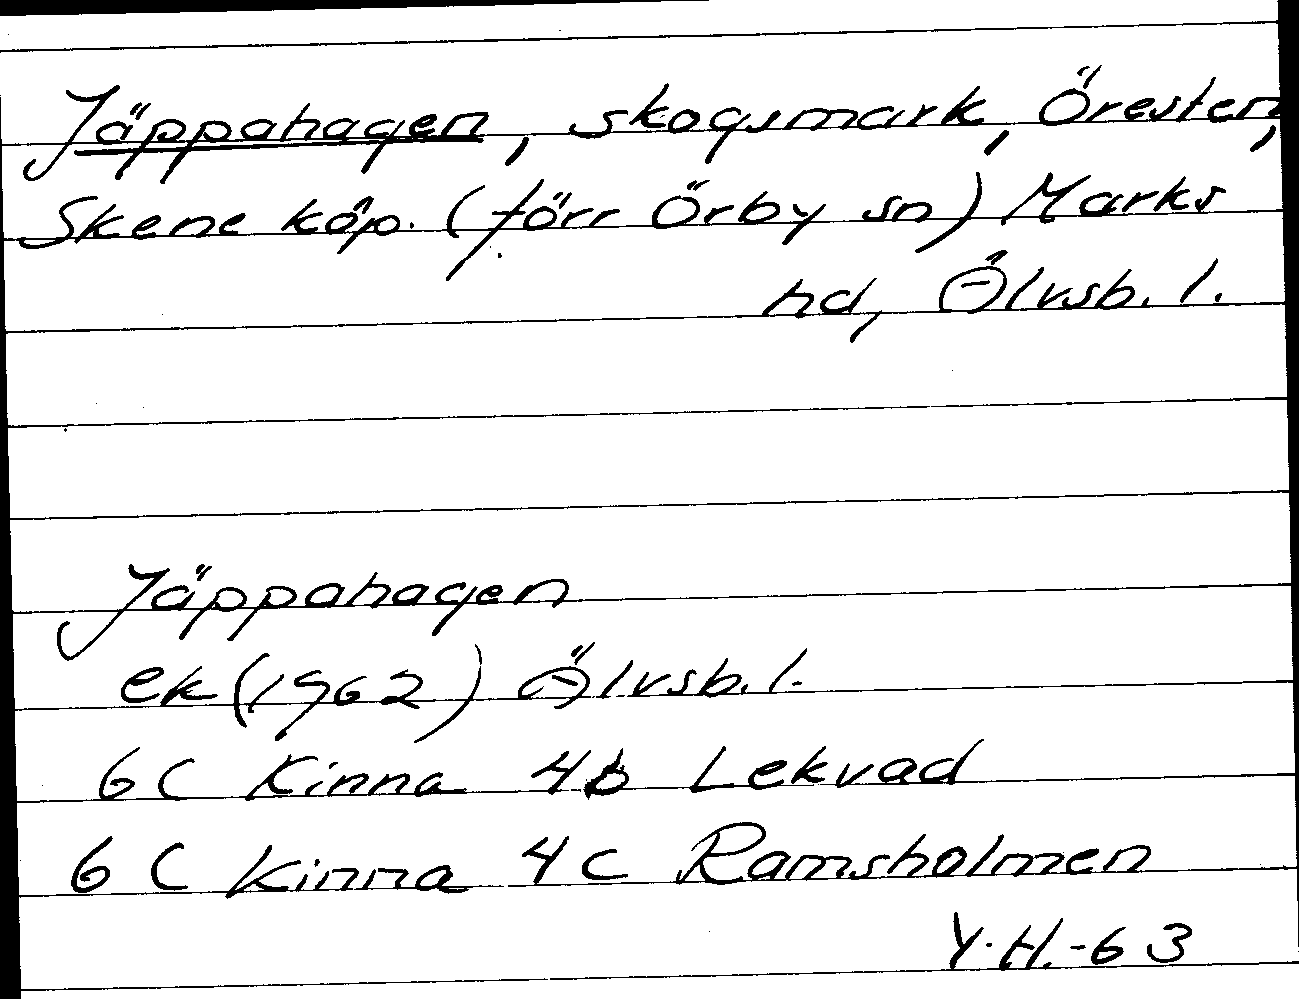 Jäppahagen, skogsmark, Öresten,
Skene köp. (förr Örby sn) Marks
hd, Älvsb. l.
Jäppahagen
ek (1962) Älvsb. l.
6 C Kinna 4b Lekvad
6 C Kinna 4c Ramsholmen
Y.H.-63